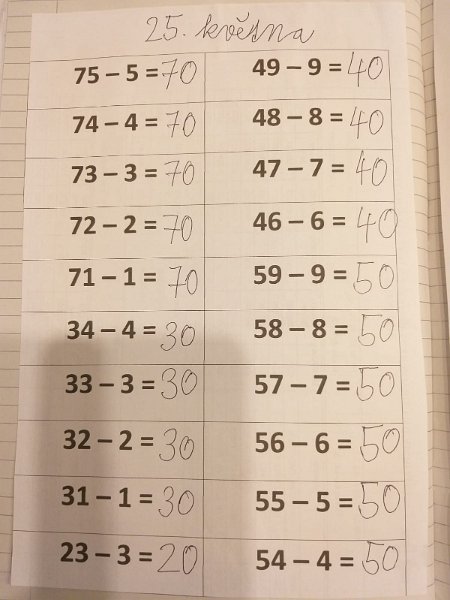 25. května
75 – 5 = 70 49 – 9 = 40
74 – 4 = 70 48 – 8 = 40
73 – 3 = 70 47 – 7 = 40
72 – 2 = 70 46 – 6 = 40
71 – 1 = 70 59 – 9 = 50
34 – 4 = 30 58 – 8 = 50
33 – 3 = 30 57 – 7 = 50
32 – 2 = 30 56 – 6 = 50
31 – 1 = 30 55 – 5 = 50
23 – 3 = 20 54 – 4 = 50